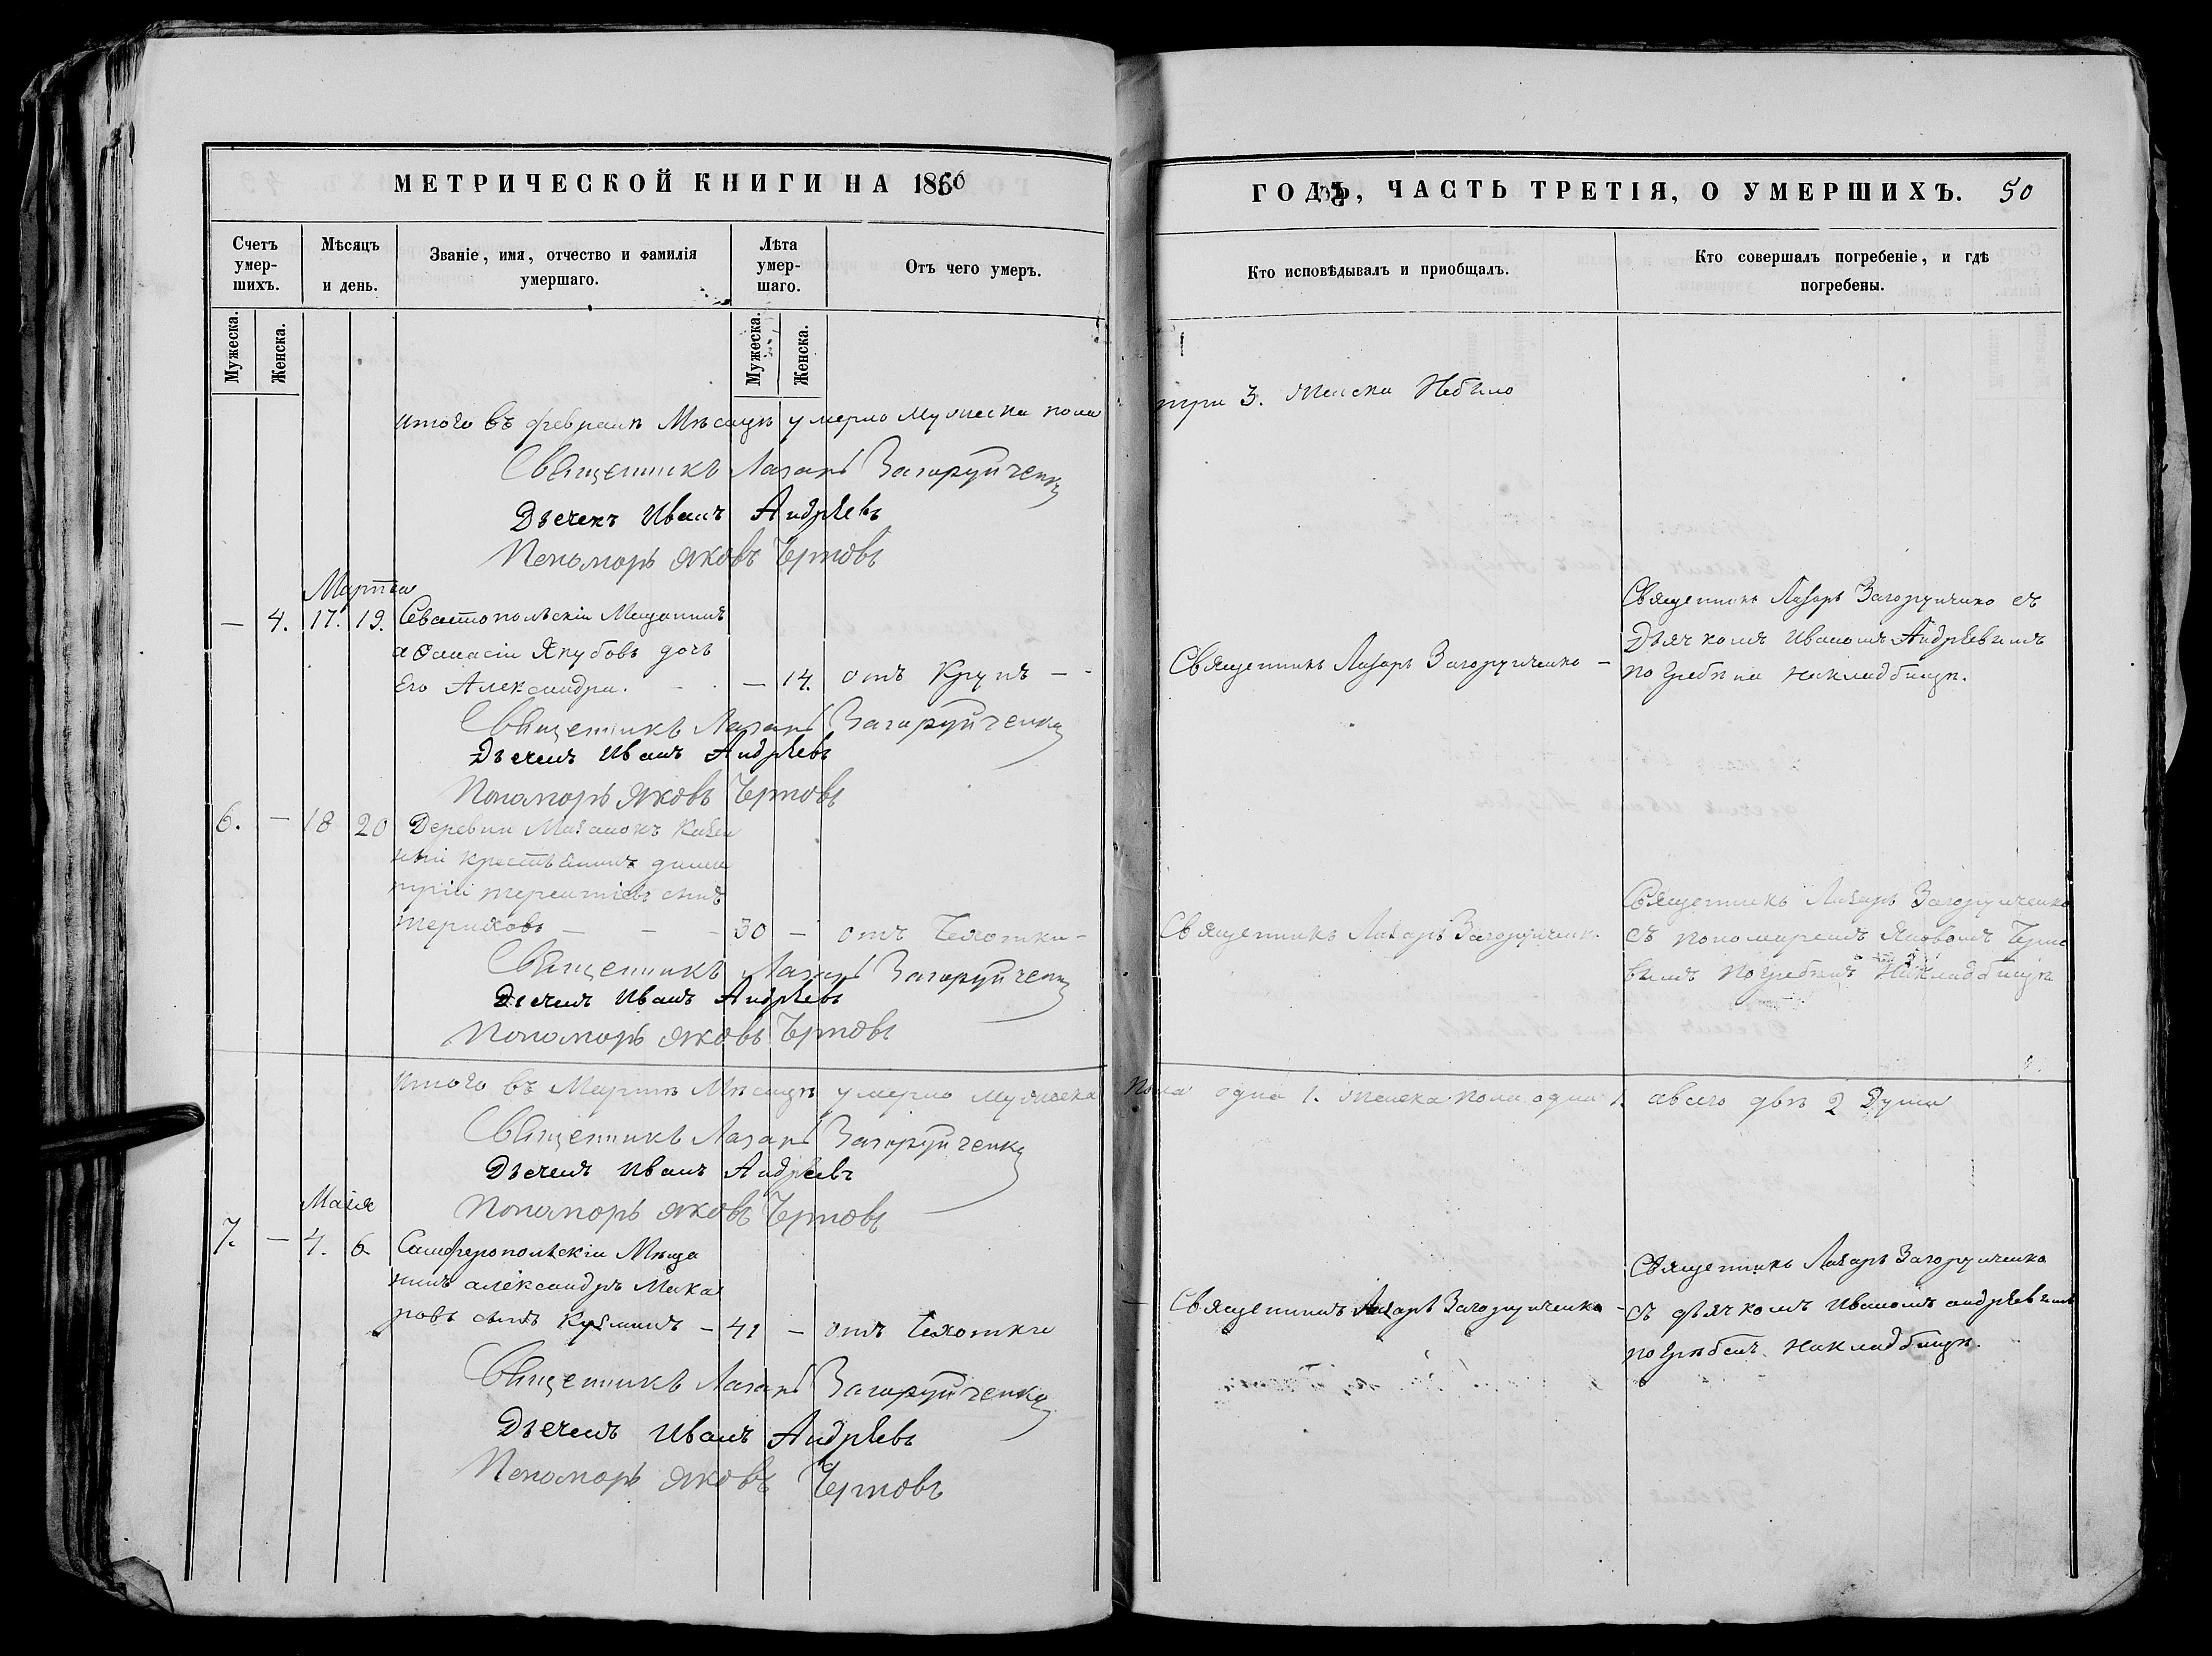 МЕТРИЧЕСКОЙ КНИГИ НА 1866
ГОДЪ, ЧАСТЬ ТРЕТІЯ, О УМЕРШИХЪ. 50
Счетъ умер-шихъ.
Мѣсяцъ и день.
Званіе, имя, отчество и фамилія умершаго.
Лѣта умер-шаго.
Отъ чего умеръ.
Кто исповѣдывалъ и приобщалъ.
Кто совершалъ погребеніе, и гдѣ погребены.
Мужеска.
Женска.
Мужеска.
Женска.
итого въ февралѣ Мѣсяцѣ умерло Мужеска пола три 3. женска Небыло
Священникъ Лазарь Загоруйченко
Дьечекъ Иванъ Андрѣевъ
Пономорь Яковъ Чертовъ
Марта
— 4. 17. 19. Севастопольскій Мещанинъ
афанасій Якубовъ дочь
Его Александра. — 14. отъ Крупъ —
Священникъ Лазарь Загоруйченко —
Священникъ Лазарь Загоруйченко съ
Дьячкомъ Иваномъ Андрѣевимъ
погребена накладбищѣ.
Священникъ Лазарь Загоруйченко
Дьечекъ Иванъ Андрѣевъ
Пономорь Яковъ Чертовъ
6. — 18 20 Деревни
крестьянинъ дими
трій терентіевъ синъ
30 — отъ Чехотки —
Священникъ Лазарь Загоруйченко
Священникъ Лазарь Загоруйченко
съ пономаремъ Яковомъ Черто
вимъ погребенъ Накладбищѣ
Священникъ Лазарь Загоруйченко
Дьечекъ Иванъ Андрѣевъ
Пономорь Яковъ Чертовъ
итого въ Мартѣ Мѣсяцѣ умерло мужеска пола одна 1. женска пола одна 1. авсего двѣ 2 Души
Священникъ Лазарь Загоруйченко
Дьечекъ Иванъ Андрѣевъ
Пономорь Яковъ Чертовъ
Маія
7. — 4. 6. Симферопольскій Мѣща
нинъ александръ Мака
ровъ синъ Кузминъ — 41 — отъ Чехотки
Священникъ Лазарь Загоруйченко —
Священникъ Лазарь Загоруйченко
съ дьячкомъ Иваномъ андрѣевимъ
погрѣбенъ накладбищѣ.
Священникъ Лазарь Загоруйченко
Дьечекъ Иванъ Андрѣевъ
Пономорь Яковъ Чертовъ